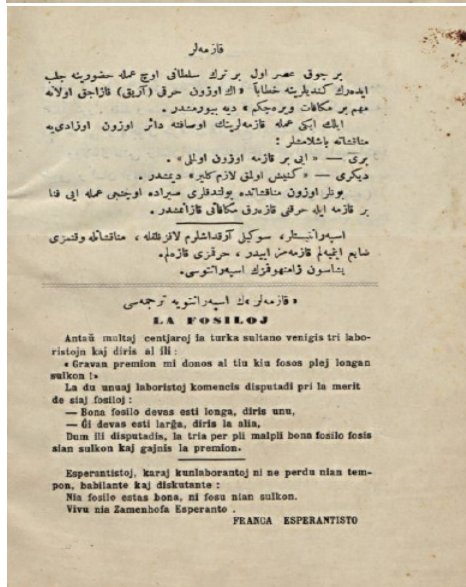 قازمه‌لر
بر چوق عصر اول بر ترك سلطانی اوچ عمله حضورینه جلب
ایده‌رك كندیلرینه خطاباً « اك اوزون حرقی (آریق) قازاجق اولانه
مهم بر مكافات ویره‌جكم » دیه بیورمشدر .
ایلك ایكی عمله قازمه‌لرینك اوصافنه دائر اوزون اوزادی‌یه
مناقشاته باشلامشلر :
بری — « ایی بر قازمه اوزون اولملی » .
دیكری — « كنیش اولمق لازم كلیر » دیمشدر .
بونلر اوزون مناقشاتده بولندقلری صیراده اوچنجی عمله ایی فنا
بر قازمه ایله حرقی قازه‌رق مكافاتی قازانمشدر .
اسپه‌رانتیستلر ، سوكیلی آرقداشلرم لاقردیله ، مناقشاتله وقتمزی
ضایع ایتمیه‌لم قازمه‌مز اییدر ، حرقمزی قازه‌لم.
یشاسون زامنهوفمزك اسپه‌رانتوسی.
« قازمه‌لر » ك اسپه‌رانتویه ترجمه‌سی
LA FOSILOJ
Antaŭ multaj centjaroj ia turka sultano venigis tri labo-
ristojn kaj diris al ili :
« Gravan premion mi donos al tiu kiu fosos plej longan
sulkon !»
La du unuaj laboristoj komencis disputadi pri la merit
de siaj fosiloj :
— Bona fosilo devas esti longa, diris unu,
— Ĝi devas esti larĝa, diris la alia,
Dum ili disputadis, la tria per pli malpli bona fosilo fosis
sian sulkon kaj gajnis la premion.
Esperantistoj, karaj kunlaborantoj ni ne perdu nian tem-
pon, babilante kaj diskutante :
Nia fosilo estas bona, ni fosu nian sulkon.
Vivu nia Zamenhofa Esperanto .
FRANCA ESPERANTISTO